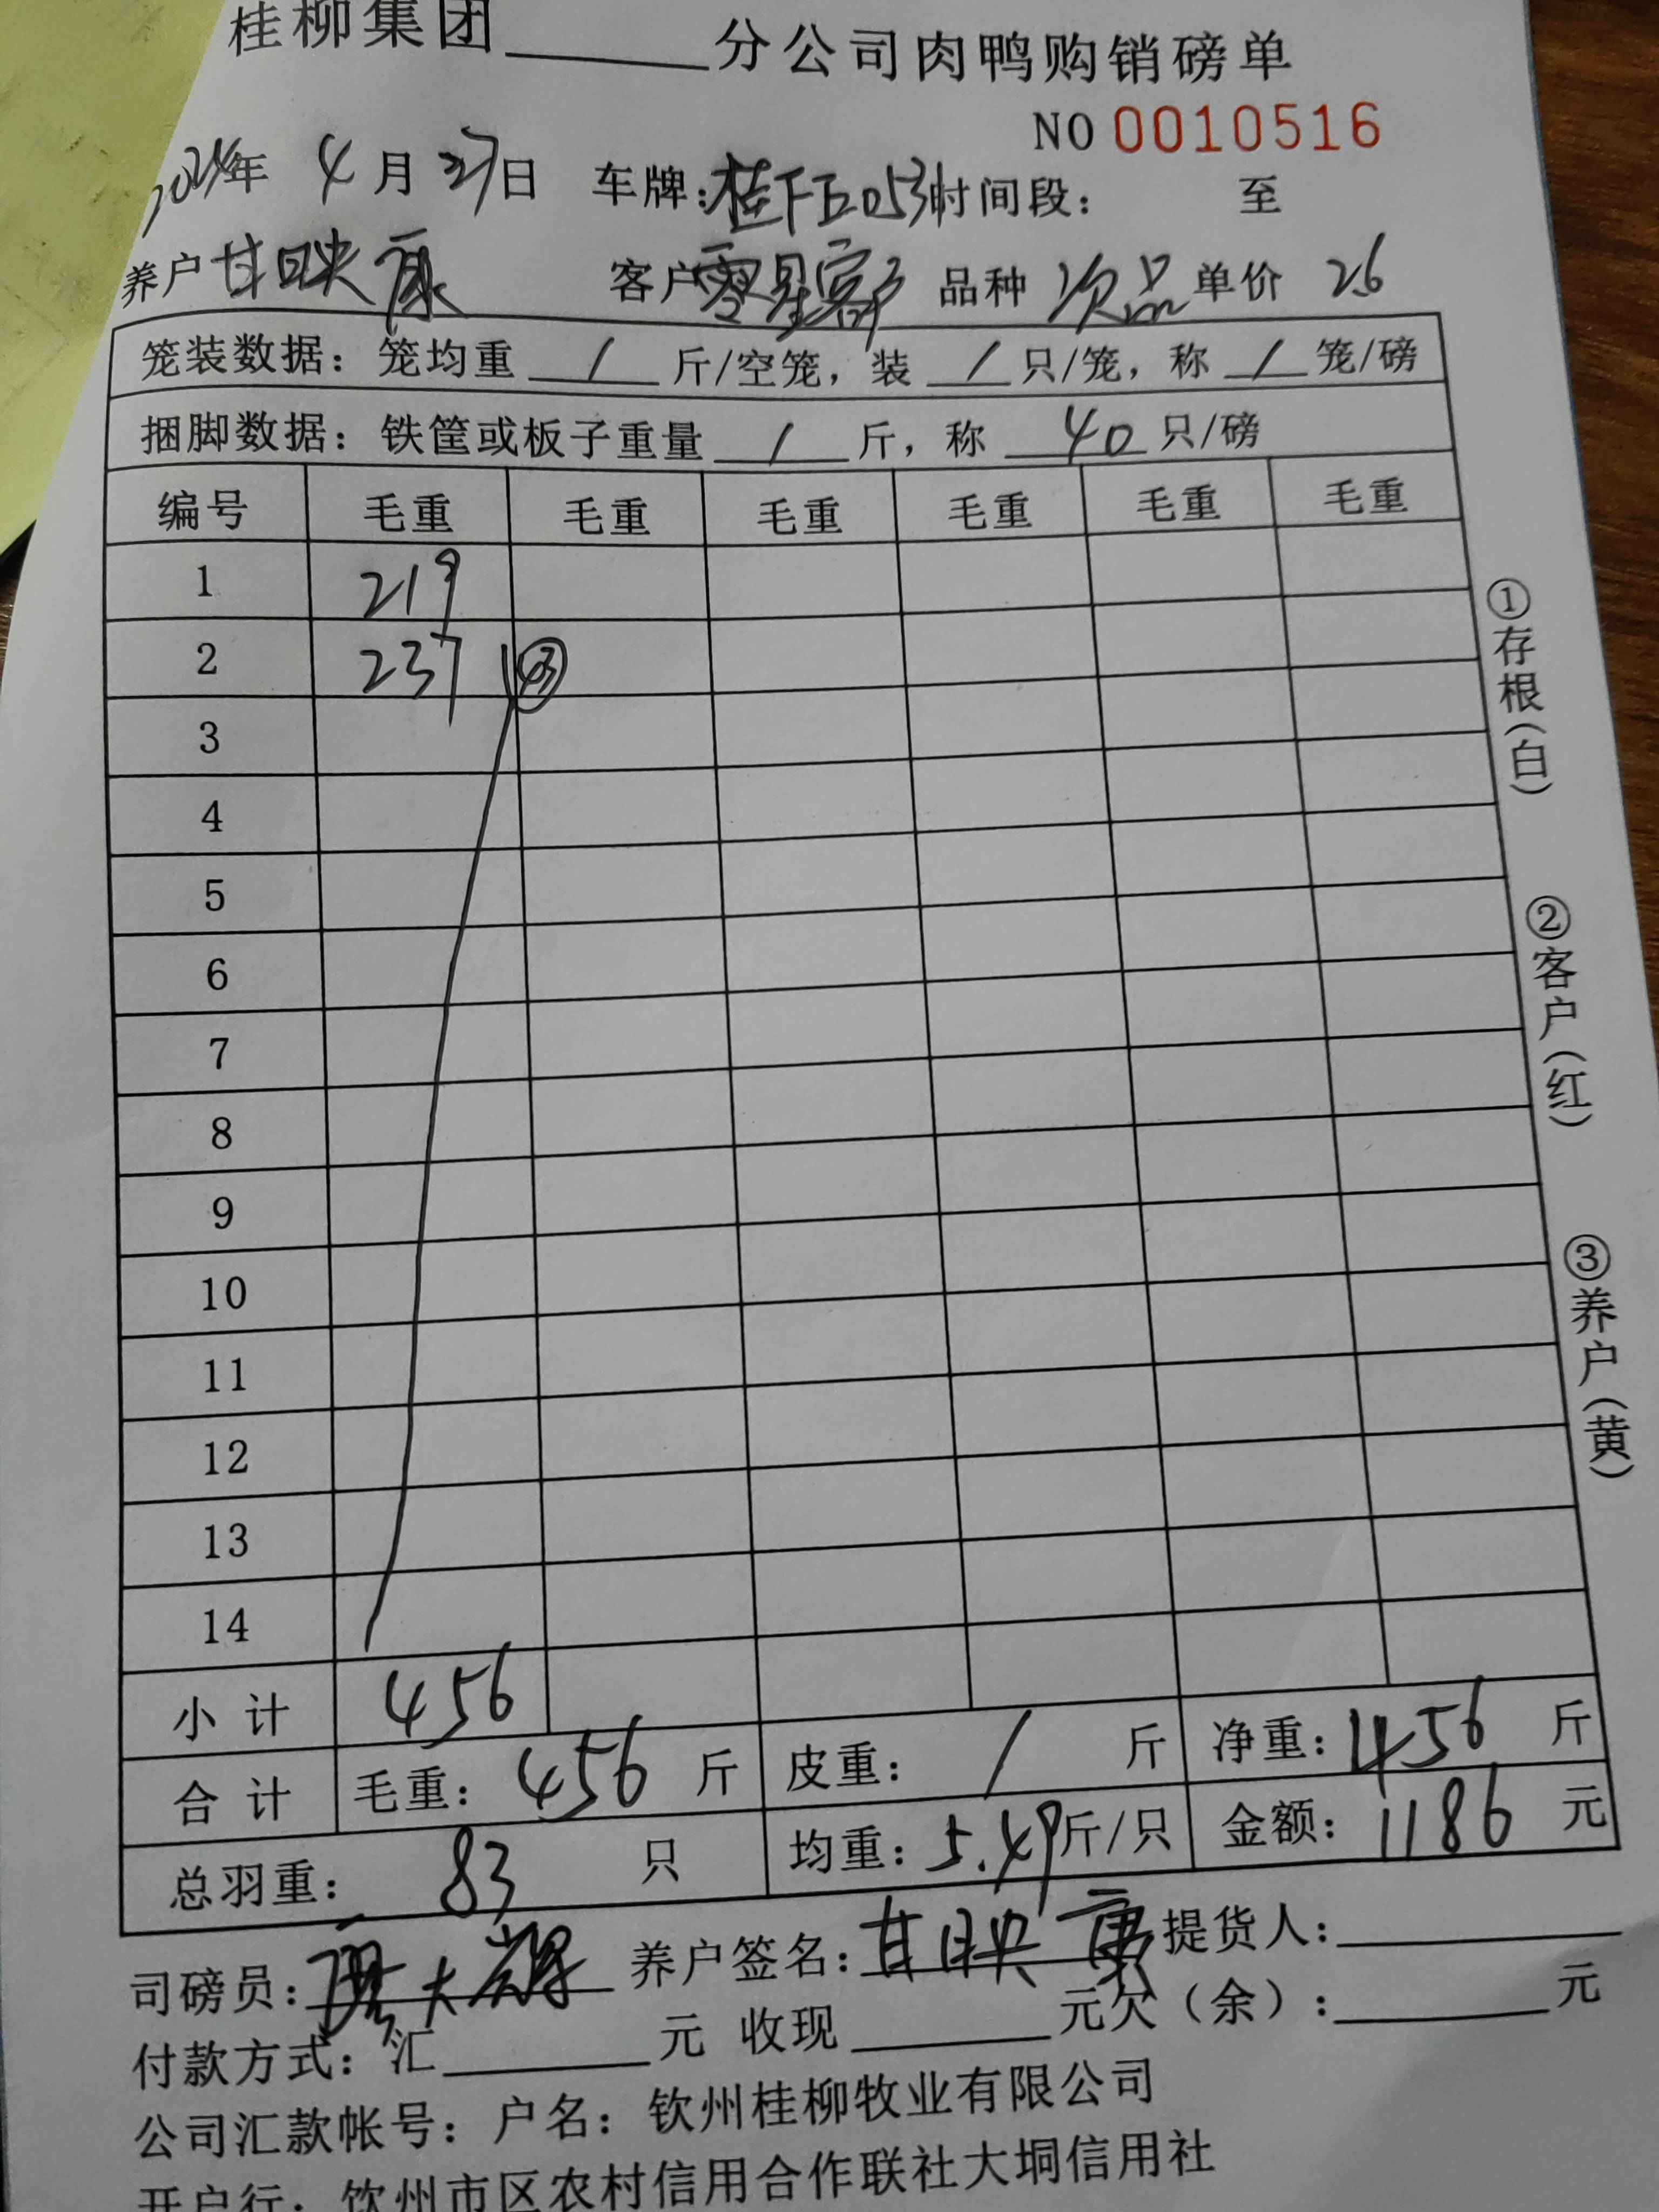 桂柳集团______分公司肉鸭购销磅单
NO 0010516
2024年 4月27日 车牌:桂 053 时间段: 至
养户 甘映康 客户 零星客户 品种 次品 单价 2.6
笼装数据: 笼均重 / 斤/空笼, 装 / 只/笼, 称 / 笼/磅
捆脚数据: 铁筐或板子重量 / 斤, 称 40 只/磅
编号 毛重 毛重 毛重 毛重 毛重 毛重
1 219
2 237 43
3
4
5
6
7
8
9
10
11
12
13
14
小计 456
合计 毛重: 456 斤 皮重: / 斤 净重: 456 斤
总羽重: 83 只 均重: 5.49 斤/只 金额: 1186 元
司磅员: 养户签名: 甘映康 提货人:______
付款方式: 汇______元 收现______元欠(余):______元
公司汇款帐号: 户名: 钦州桂柳牧业有限公司
开户行: 钦州市区农村信用合作联社大垌信用社
①存根(白)
②客户(红)
③养户(黄)